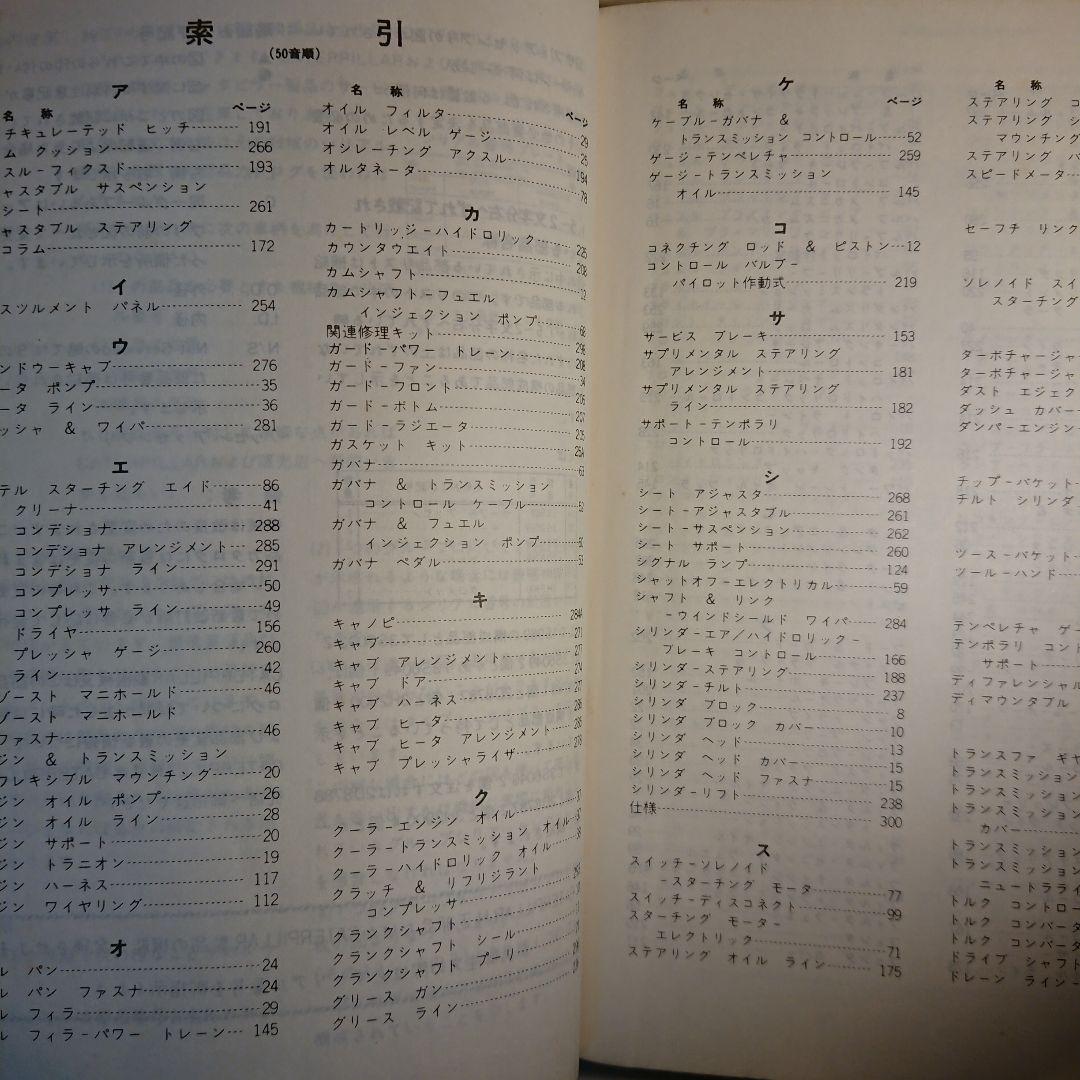 索 引
(50音順)
ア
名 称 ページ
チキュレーテッド ヒッチ 191
ム クッション 266
スル-フィクスド 193
ャスタブル サスペンション
シート 261
ャスタブル ステアリング
コラム 172
イ
スツルメント パネル 254
ウ
ンドウーキャブ 276
ータ ポンプ 35
ータ ライン 36
ッシャ & ワイパ 281
エ
テル スターチング エイド 86
クリーナ 41
コンデショナ 288
コンデショナ アレンジメント 285
コンデショナ ライン 291
コンプレッサ 50
コンプレッサ ライン 49
ドライヤ 156
プレッシャ ゲージ 260
ライン 42
ブースト マニホールド 46
ブースト マニホールド
ファスナ 46
ジン & トランスミッション
フレキシブル マウンチング 20
ジン オイル ポンプ 26
ジン オイル ライン 28
ジン サポート 20
ジン トラニオン 19
ジン ハーネス 117
ジン ワイヤリング 112
オ
ル パン 24
ル パン ファスナ 24
ル フィラ 29
ル フィラ-パワー トレーン 145
名 称 ページ
オイル フィルタ 29
オイル レベル ゲージ 25
オシレーチング アクスル 194
オルタネータ 78
カ
カートリッジ-ハイドロリック 225
カウンタウエイト 208
カムシャフト 12
カムシャフト-フュエル
インジェクション ポンプ 68
関連修理キット 296
ガード-パワー トレーン 208
ガード-ファン 34
ガード-フロント 206
ガード-ボトム 207
ガード-ラジエータ 205
ガスケット キット 25A
ガバナ 63
ガバナ & トランスミッション
コントロール ケーブル 52
ガバナ & フュエル
インジェクション ポンプ 60
ガバナ ペダル 53
キ
キャノピ 284A
キャブ 271
キャブ アレンジメント 277
キャブ ドア 274
キャブ ハーネス
キャブ ヒータ
キャブ ヒータ アレンジメント
キャブ プレッシャライザ
ク
クーラ-エンジン オイル 37
クーラ-トランスミッション オイル
クーラ-ハイドロリック オイル
クラッチ & リフリジラント
コンプレッサ
クランクシャフト
クランクシャフト シール
クランクシャフト プーリ
グリース ガン
グリース ライン
ケ
名 称 ページ
ケーブル-ガバナ &
トランスミッション コントロール 52
ゲージ-テンペレチャ 259
ゲージ-トランスミッション
オイル 145
コ
コネクチング ロッド & ピストン 12
コントロール バルブ-
パイロット作動式 219
サ
サービス ブレーキ 153
サプリメンタル ステアリング
アレンジメント 181
サプリメンタル ステアリング
ライン 182
サポート-テンポラリ
コントロール 192
シ
シート アジャスタ 268
シート-アジャスタブル 261
シート-サスペンション 262
シート サポート 260
シグナル ランプ 124
シャットオフ-エレクトリカル 59
シャフト & リンク
-ウインドシールド ワイパ 284
シリンダ-エア/ハイドロリック-
ブレーキ コントロール 166
シリンダ-ステアリング 188
シリンダ-チルト 237
シリンダ ブロック 8
シリンダ ブロック カバー 10
シリンダ ヘッド 13
シリンダ ヘッド カバー 15
シリンダ ヘッド ファスナ 15
シリンダ-リフト 238
仕様 300
ス
スイッチ-ソレノイド
-スターチング モータ 77
スイッチ-ディスコネクト 99
スターチング モータ-
エレクトリック 71
ステアリング オイル ライン 175
ステアリング コ
ステアリング シ
マウンチング
ステアリング バ
スピードメータ
セーフチ リンク
ソレノイド スイ
スターチング
ターボチャージャ
ターボチャージャ
ダスト エジェク
ダッシュ カバー
ダンパーエンジン
チップ-バケット
チルト シリンダ
ツース-バケット
ツール-ハンド
テンペレチャ ゲー
テンポラリ コント
サポート
ディファレンシャル
ディマウンタブル
トランスファ ギヤ
トランスミッション
トランスミッション
トランスミッション
カバー
トランスミッション
トランスミッション
ニュートラライ
トルク コントロー
トルク コンバータ
トルク コンバータ
ドライブ シャフト
ドレーン ライン